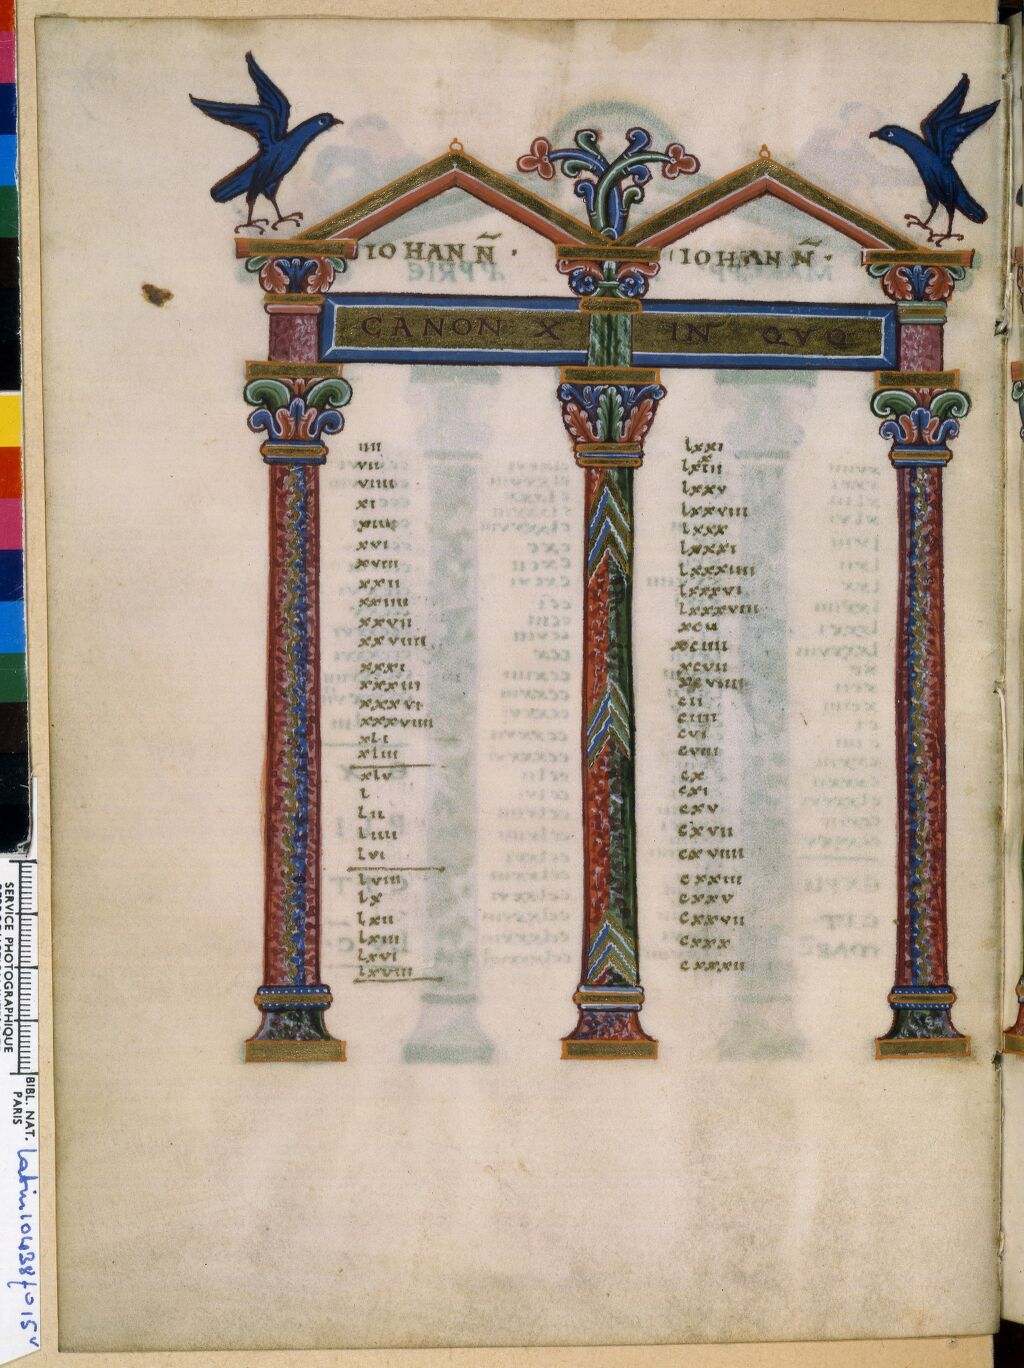 IOHANÑ·
IOHANÑ·
CANON X IN QVO
IIII
VII
VIIII
XI
XIIII
XVI
XVIII
XXII
XXIIII
XXVII
XXVIIII
XXXI
XXXIII
XXXVI
XXXVIIII
XLI
XLIII
XLV
L
LII
LIIII
LVI
LVIII
LX
LXII
LXIIII
LXVI
LXVIII
LXXI
LXXV
LXXVIII
LXXX
LXXXI
LXXXIIII
LXXXVI
LXXXVIII
XCII
XCIIII
XCVII
CII
CIIII
CVI
CVIII
CX
CXI
CXV
CXVII
CXVIIII
CXXIII
CXXV
CXXVII
CXXX
CXXXII
SERVICE PHOTOGRAPHIQUE
BIBL. NAT.
PARIS
Latin 10438 fo 15v